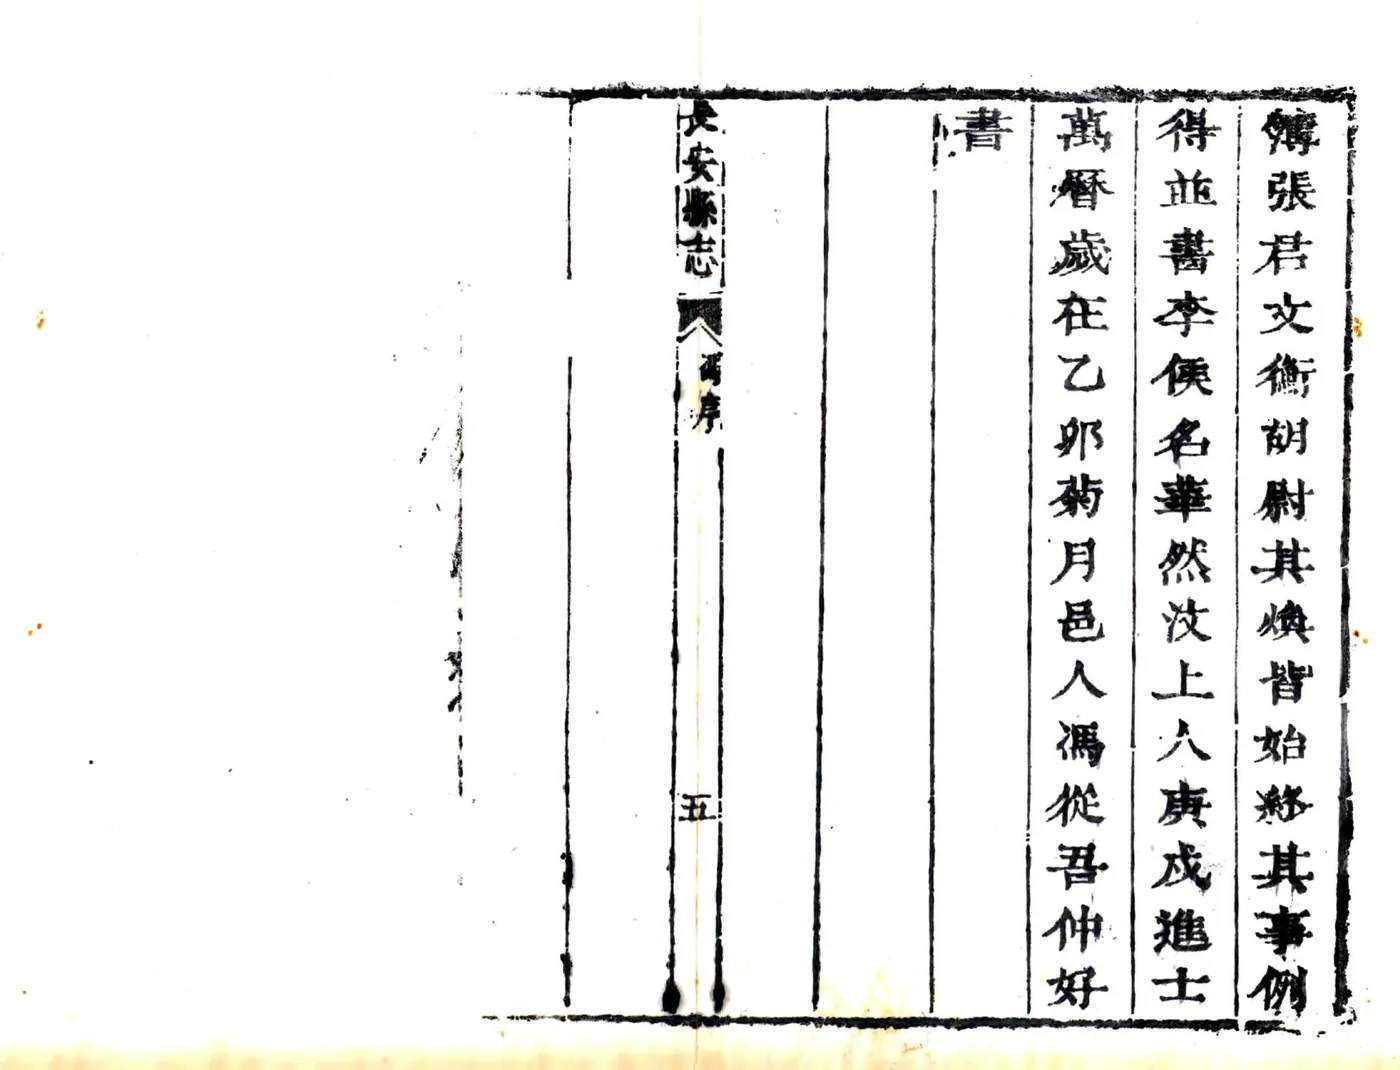 簿張君文衡胡尉其煥皆始終其事例
得並書李侯名華然汶上人庚戌進士
萬曆歲在乙卯菊月邑人馮從吾仲好
書
長安縣志
馮序
五